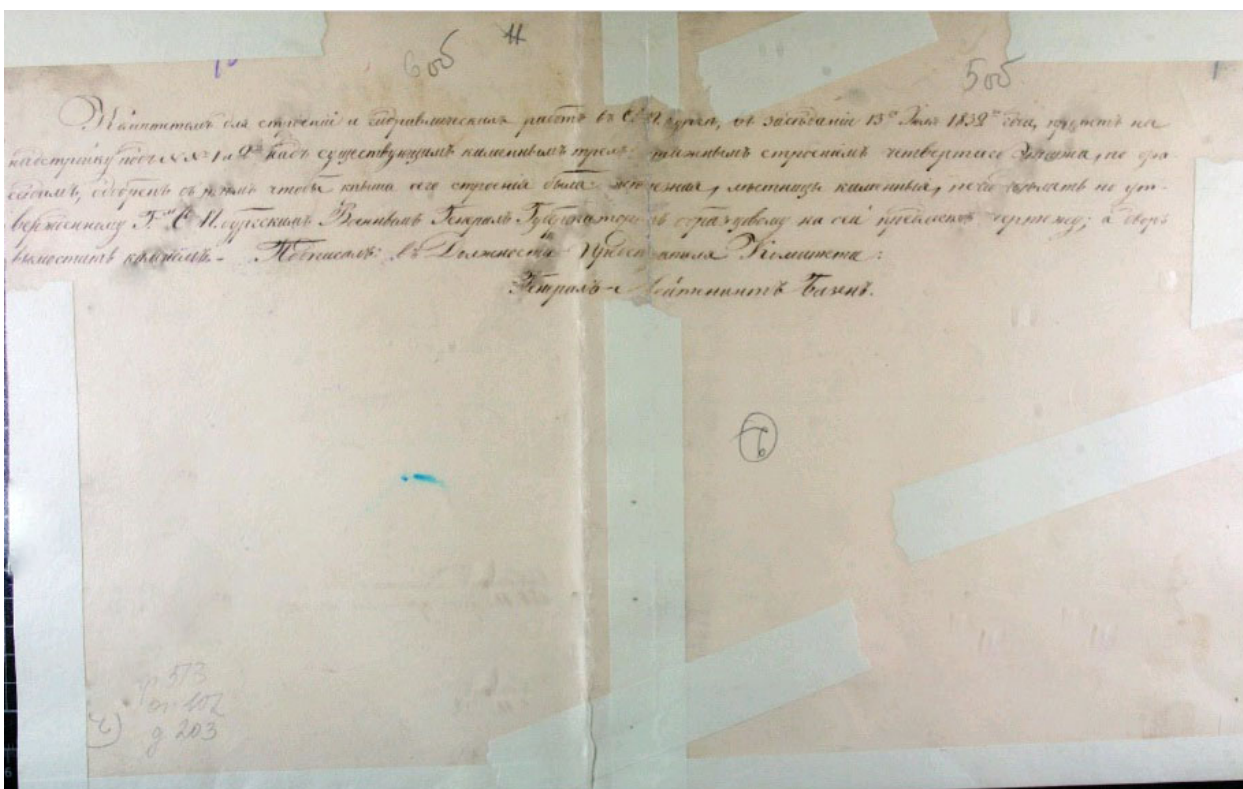 11
6об
5об
Комитетомъ для строеній и гидравлическихъ работъ въ С. П. бургѣ, въ засѣданіи 13го Іюля 1832го года, проэктъ на
надстройку подъ №№ 1 и 2мъ надъ существующимъ каменнымъ трехъ этажнымъ строеніемъ четвертаго этажа, по фа-
садамъ, одобренъ съ тѣмъ чтобы крыша сего строенія была желѣзная, лѣстницы каменныя,
вержденному Г. С. П. бургскимъ Военнымъ Генералъ Губернаторомъ образцовому на сей предметъ чертежу; а дворъ
вымостить камнемъ. - Подписалъ: въ Должности Предсѣдателя Комитета:
Генералъ-Лейтенантъ Базенъ.
6
ф 573
оп 102
д 203